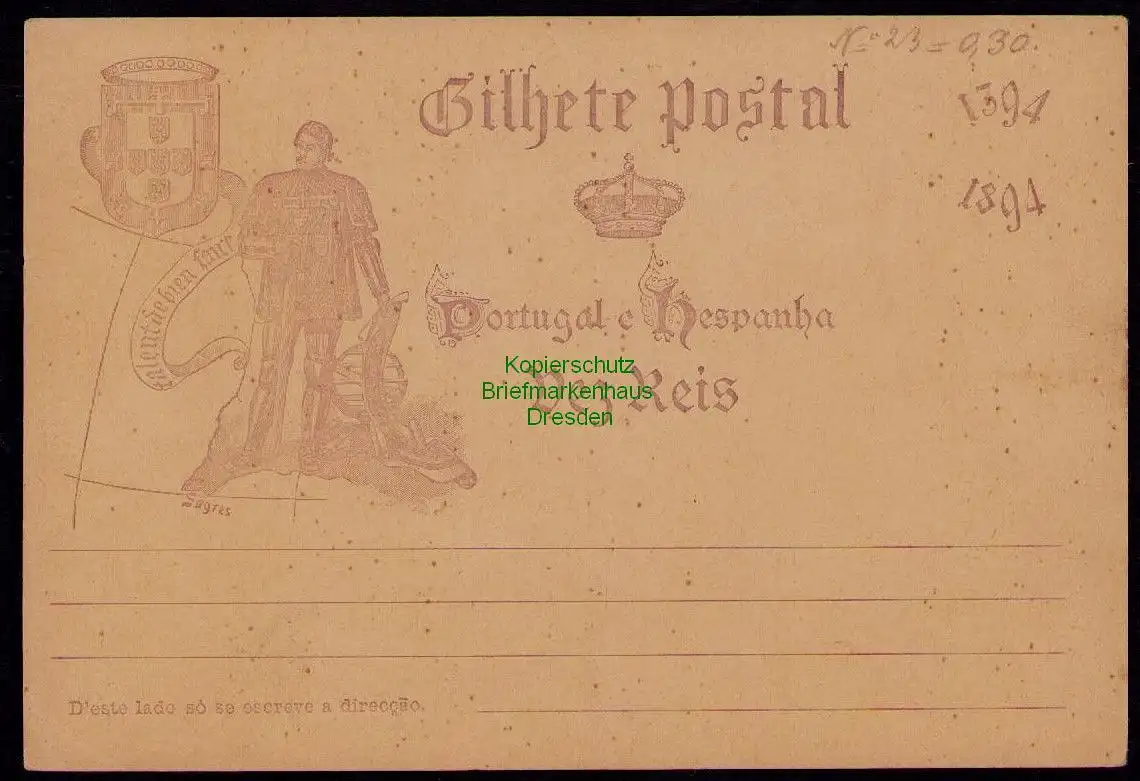 Nº 23 = 0,30.
Bilhete postal
1394
1894
talent de bien faire
Portugal e Hespanha
Dez Reis
Kopierschutz
Briefmarkenhaus
Dresden
Sagres
D'este lado só se escreve a direcção.